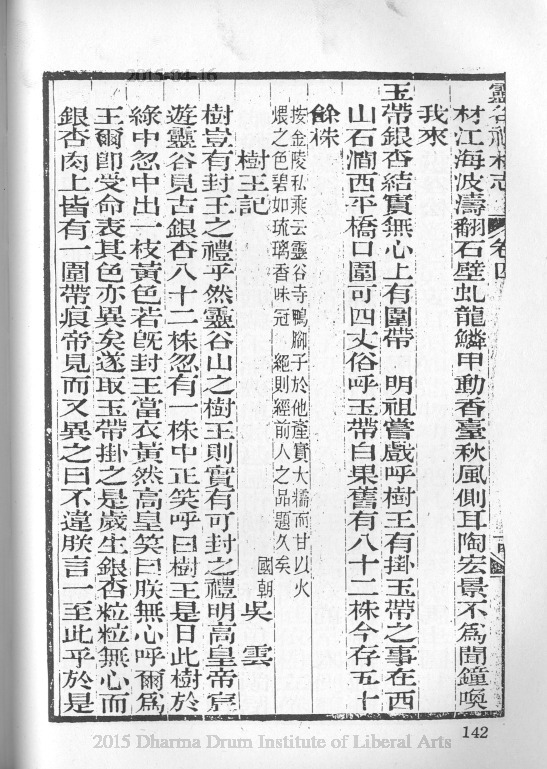 2015-04-16
靈谷禪林志 卷四
材江海波濤翻石壁虬龍鱗甲動香臺秋風側耳陶宏景不爲聞鐘喚
我來
玉帶銀杏結實無心上有圍帶 明祖嘗戲呼樹王有掛玉帶之事在西
山石澗西平橋口圍可四丈俗呼玉帶白果舊有八十二株今存五十
餘株
按金陵私乘云靈谷寺鴨腳子於他產實大糯而甘以火
煨之色碧如琉璃香味冠 絕則經前人之品題久矣
樹王記
國朝 吳 雲
樹豈有封王之禮乎然靈谷山之樹王則實有可封之禮明高皇帝宸
遊靈谷見古銀杏八十二株忽有一株中正笑呼曰樹王是日此樹於
綠中忽中出一枝黃色若旣封王當衣黃然高皇笑曰朕無心呼爾爲
王爾卽受命表其色亦異矣遂取玉帶掛之是歲生銀杏粒粒無心而
銀杏肉上皆有一圍帶痕帝見而又異之曰不違朕言一至此乎於是
142
2015 Dharma Drum Institute of Liberal Arts